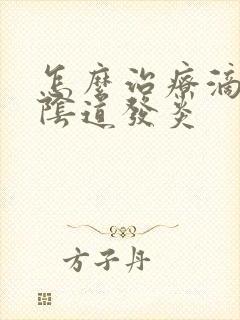 怎麼治療滴
陰道發炎
方子丹